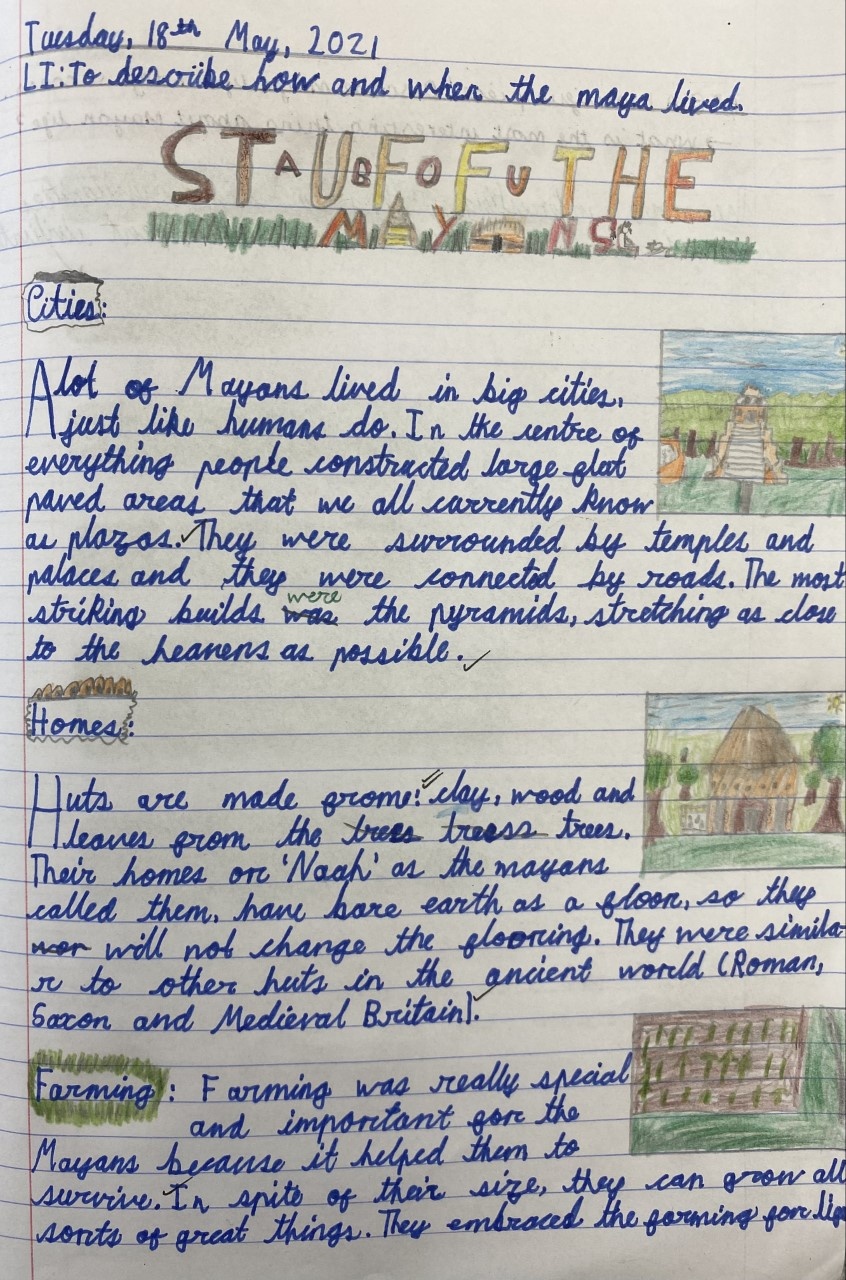 Tuesday, 18th May, 2021
LI: To describe how and when the maya lived.
STAUBFOFU THE
MAYANS
Cities:
A lot of Mayans lived in big cities,
just like humans do. In the centre of
everything people constructed large flat
paved areas that we all currently know
as plazas. They were surrounded by temples and
palaces and they were connected by roads. The most
were
striking builds was the pyramids, stretching as close
to the heavens as possible.
Homes:
Huts are made frome: clay, wood and
leaves from the trees tresss trees.
Their homes or 'Naah' as the mayans
called them, have bare earth as a floor, so they
wor will not change the flooring. They were simila-
r to other huts in the ancient world (Roman,
Saxon and Medieval Britain).
Farming: Farming was really special
and important for the
Mayans because it helped them to
survive. In spite of their size, they can grow all
sorts of great things. They embraced the farming for life